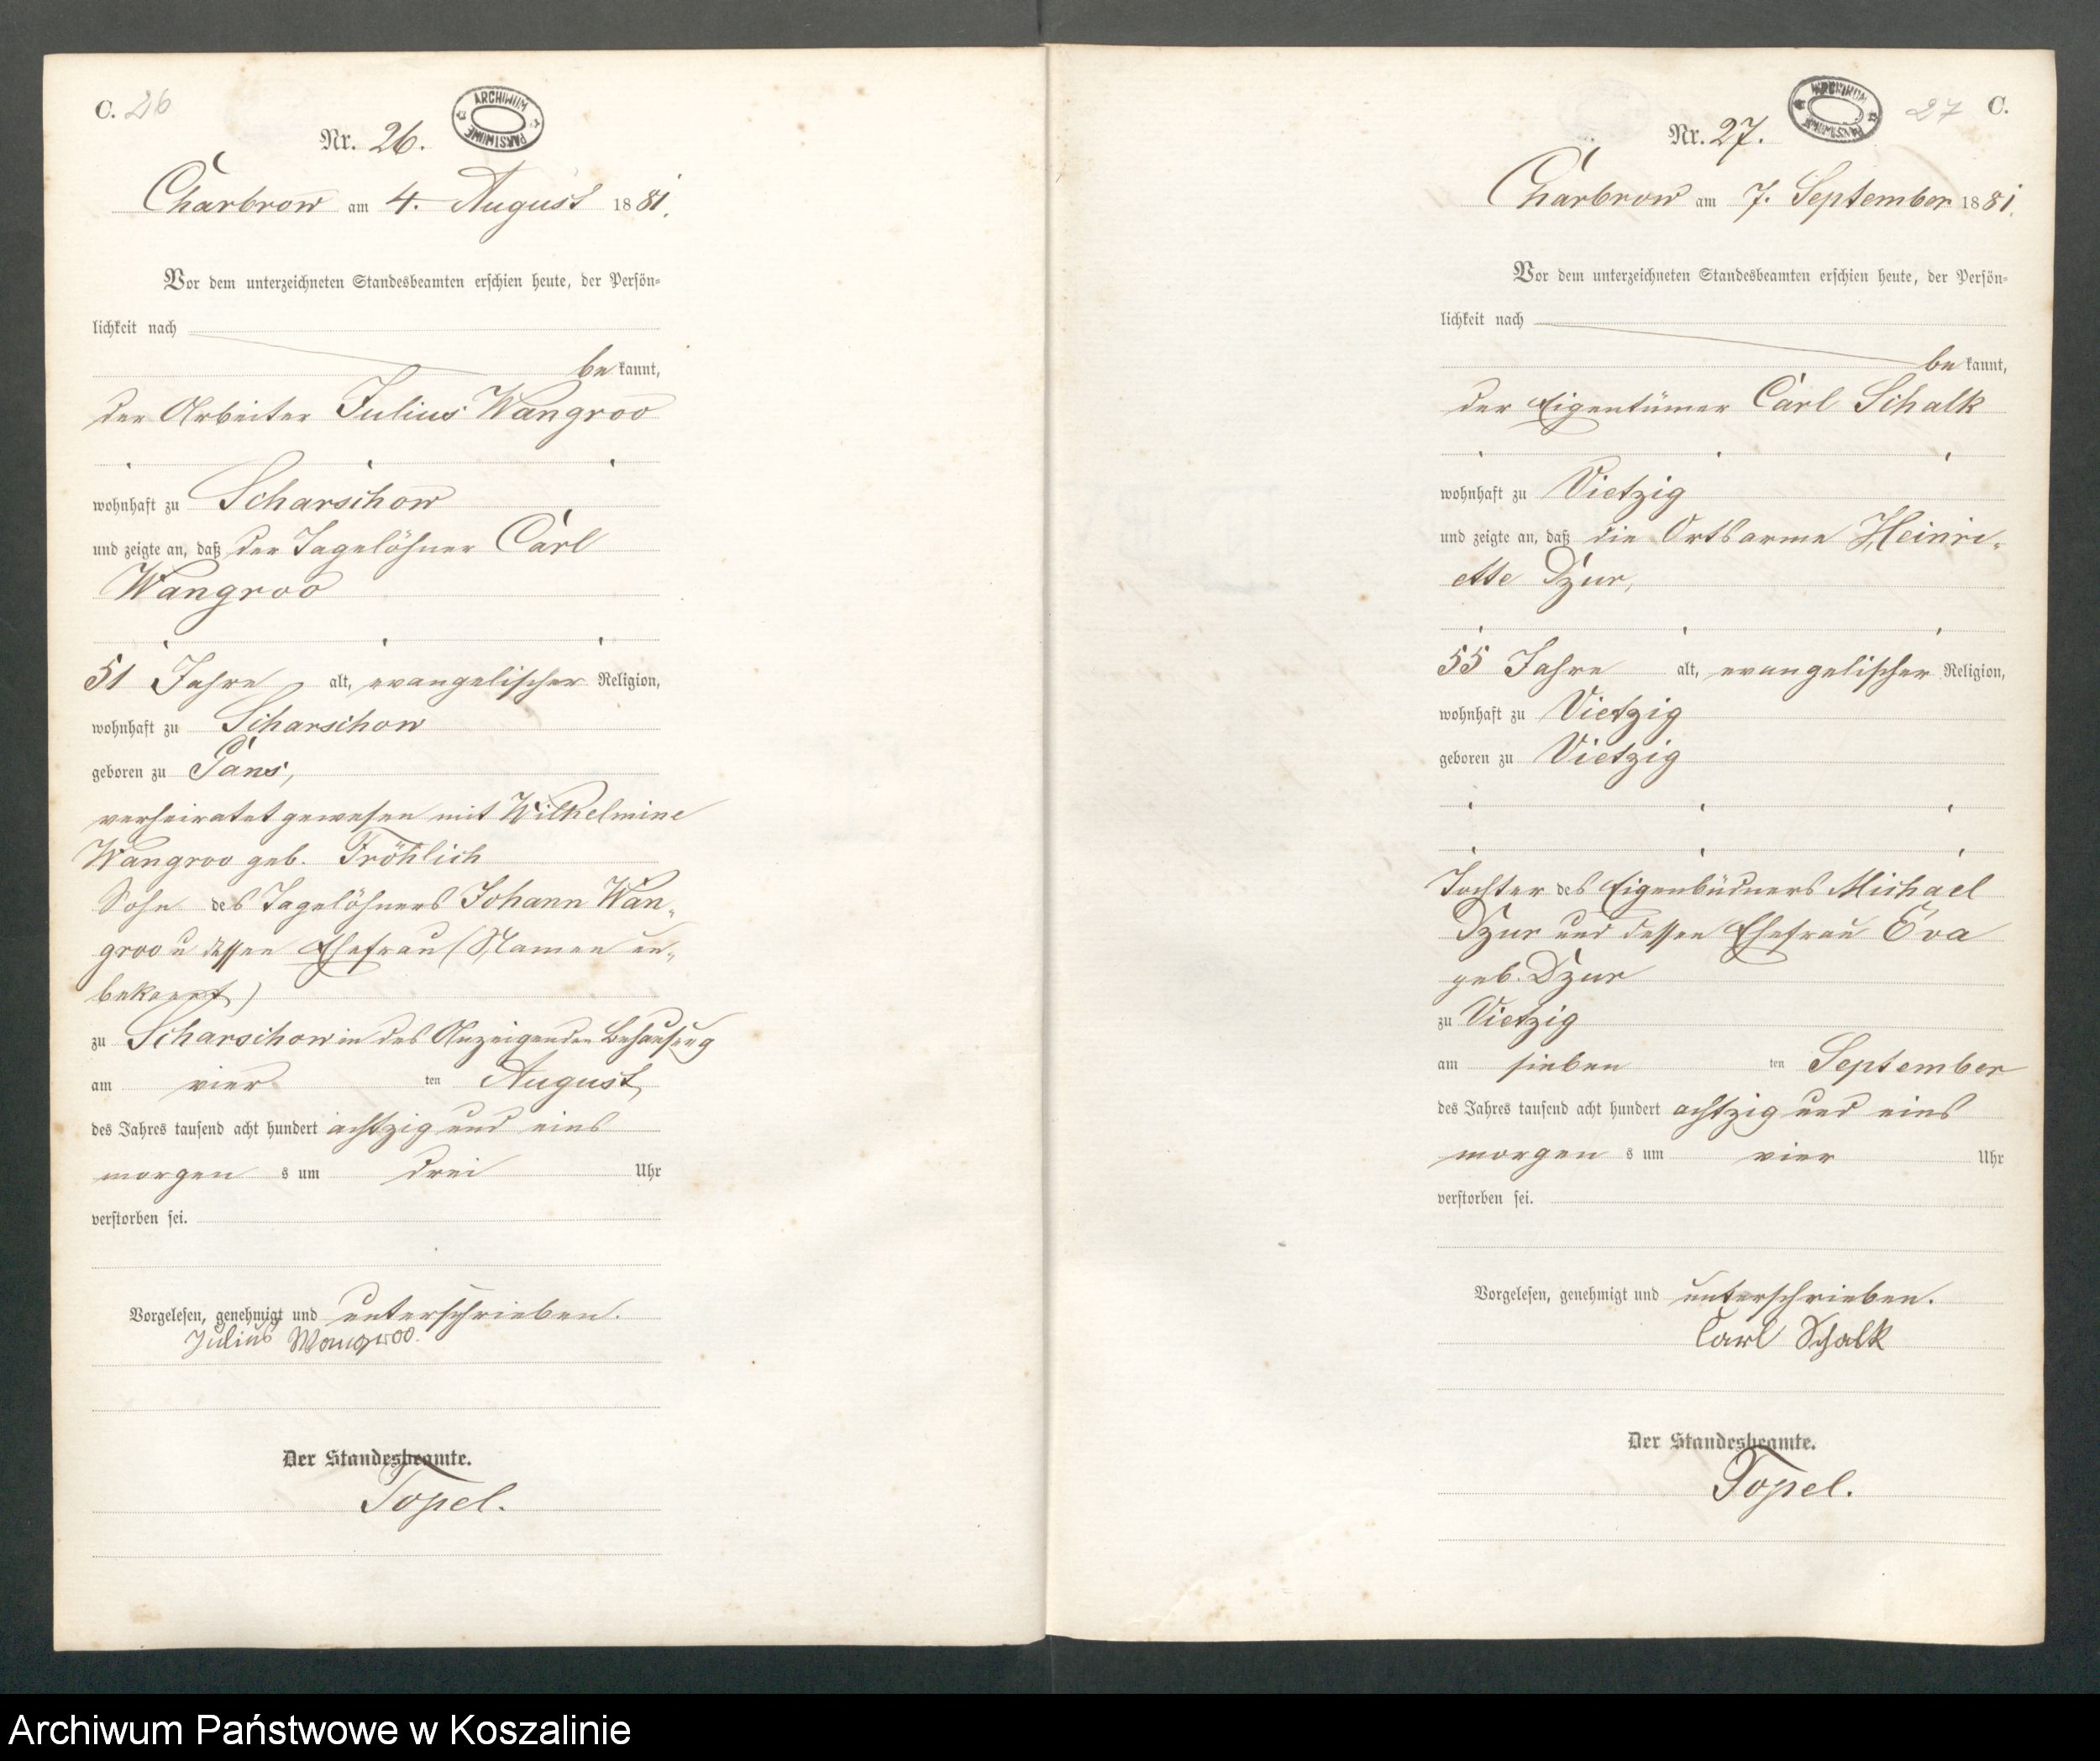 C. 26
Nr. 26.
ARCHIWUM PAŃSTWOWE
Charbrow am 4. August 1881.
Vor dem unterzeichneten Standesbeamten erschien heute, der Persön-
lichkeit nach
be kannt,
der Arbeiter Julius Wangroo
wohnhaft zu Scharschow
und zeigte an, daß der Tagelöhner Carl
Wangroo
51 Jahre alt, evangelischer Religion,
wohnhaft zu Scharschow
geboren zu Sans,
verheiratet gewesen mit Wilhelmine
Wangroo geb. Fröhlich
Sohn des Tagelöhners Johann Wan-
groo u dessen Ehefrau (Namen un-
bekannt)
zu Scharschow in des Anzeigenden Behausung
am vier ten August
des Jahres tausend acht hundert achtzig und eins
morgen s um drei Uhr
verstorben sei.
Vorgelesen, genehmigt und unterschrieben.
Julius Wangroo.
Der Standesbeamte.
Topel.
27 C.
Nr. 27.
ARCHIWUM PAŃSTWOWE
Charbrow am 7. September 1881.
Vor dem unterzeichneten Standesbeamten erschien heute, der Persön-
lichkeit nach
be kannt,
der Eigentümer Carl Schalk
wohnhaft zu Vietzig
und zeigte an, daß die Ortsarme Heinri-
ette Dzur,
55 Jahre alt, evangelischer Religion,
wohnhaft zu Vietzig
geboren zu Vietzig
Tochter des Eigenbüdners Michael
Dzur und dessen Ehefrau Eva
geb. Dzur
zu Vietzig
am sieben ten September
des Jahres tausend acht hundert achtzig und eins
morgen s um vier Uhr
verstorben sei.
Vorgelesen, genehmigt und unterschrieben.
Carl Schalk
Der Standesbeamte.
Topel.
Archiwum Państwowe w Koszalinie